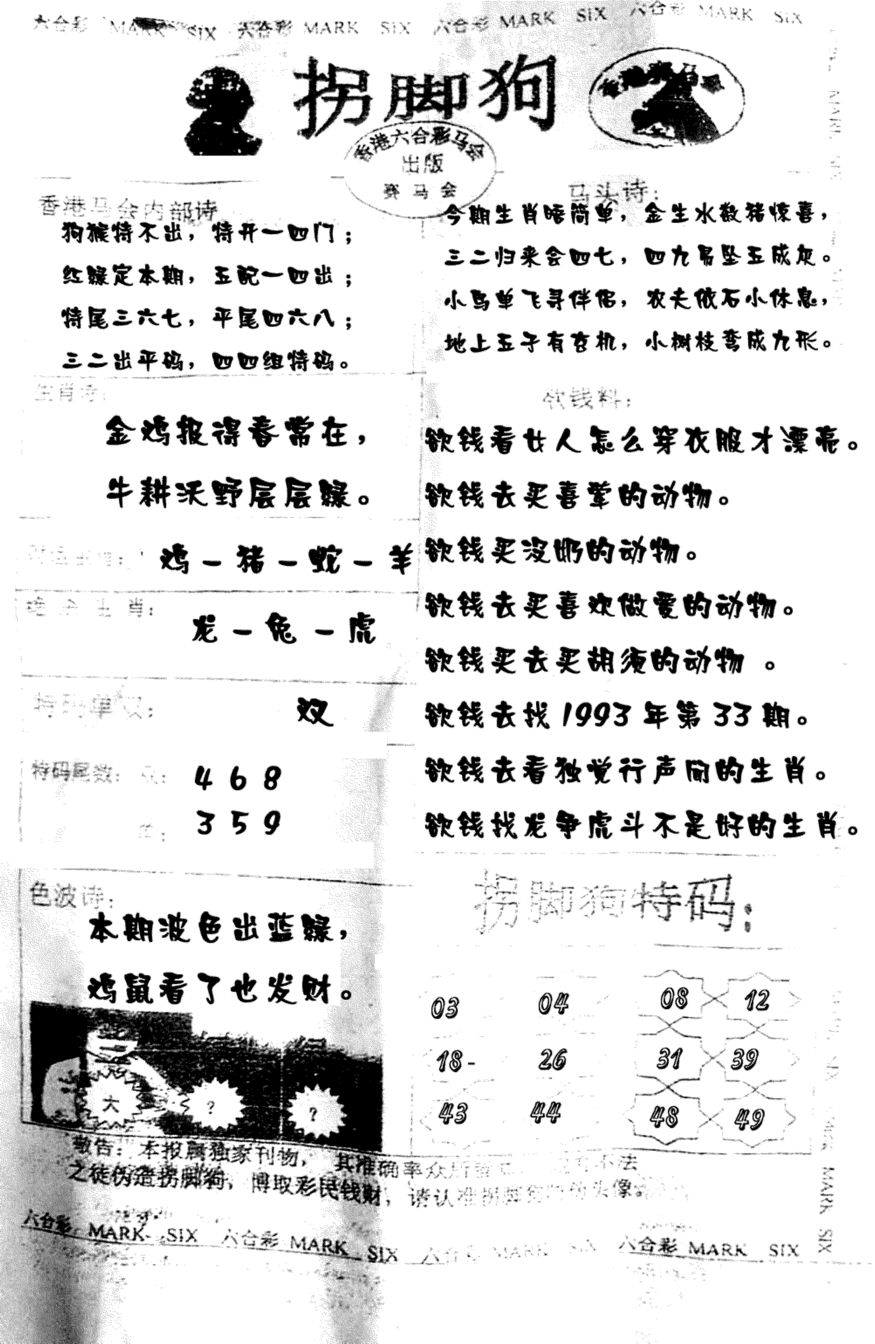 六合彩 MARK SIX 六合彩 MARK SIX 六合彩 MARK SIX 六合彩 MARK SIX
拐脚狗
香港六合彩马会
出版
赛马会
香港马会内部诗
狗猴特不出，特开一四门；
红绿定本期，五配一四出；
特尾三六七，平尾四六八；
三二出平码，四四组特码。
马头诗：
今期生肖晤简单，金生水数猪惊喜，
三二归来会四七，四九吊坠五成灰。
小鸟单飞寻伴侣，农夫依石小休息，
地上五子有玄机，小树枝弯成九形。
生肖诗：
金鸡报得春常在，
牛耕沃野层层绿。
鸡－猪－蛇－羊
绝杀生肖：
龙－兔－虎
特码单双：
双
特码尾数：双：
4 6 8
单：
3 5 9
欲钱料：
欲钱看女人怎么穿衣服才漂亮。
欲钱去买喜荤的动物。
欲钱买没奶的动物。
欲钱去买喜欢做爱的动物。
欲钱买去买胡须的动物 。
欲钱去找 1993 年第 33 期。
欲钱去看独觉行声闻的生肖。
欲钱找龙争虎斗不是好的生肖。
色波诗：
本期波色出蓝绿，
鸡鼠看了也发财。
大 ? ?
拐脚狗特码：
03 04 08 12
18- 26 31 39
43 44 48 49
敬告：本报属独家刊物，其准确率众所 不法
之徒伪造拐脚狗，博取彩民钱财，请认准拐脚狗 头像。
六合彩 MARK SIX 六合彩 MARK SIX 六合彩 MARK SIX 六合彩 MARK SIX
MARK SIX